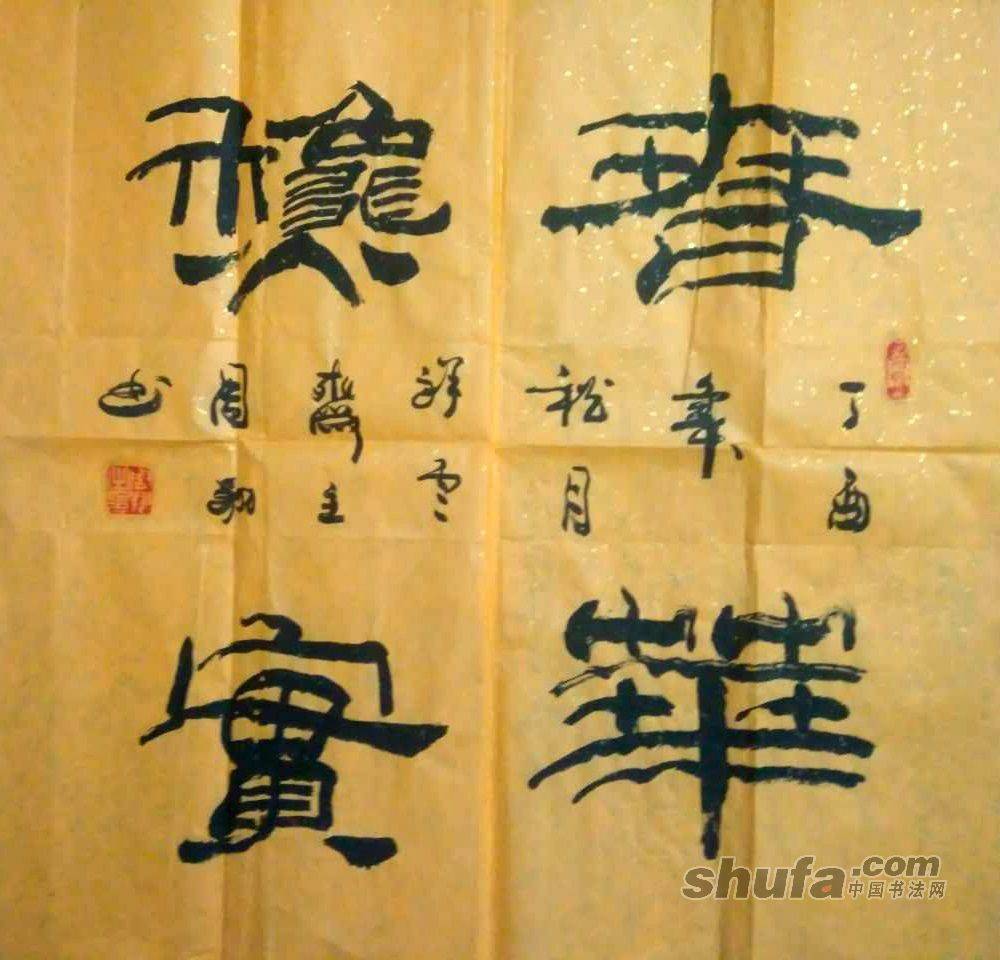 春華
龝實
丁酉
年
秋月
祥雲
齋主
周翔
书
shufa.com
中国书法网